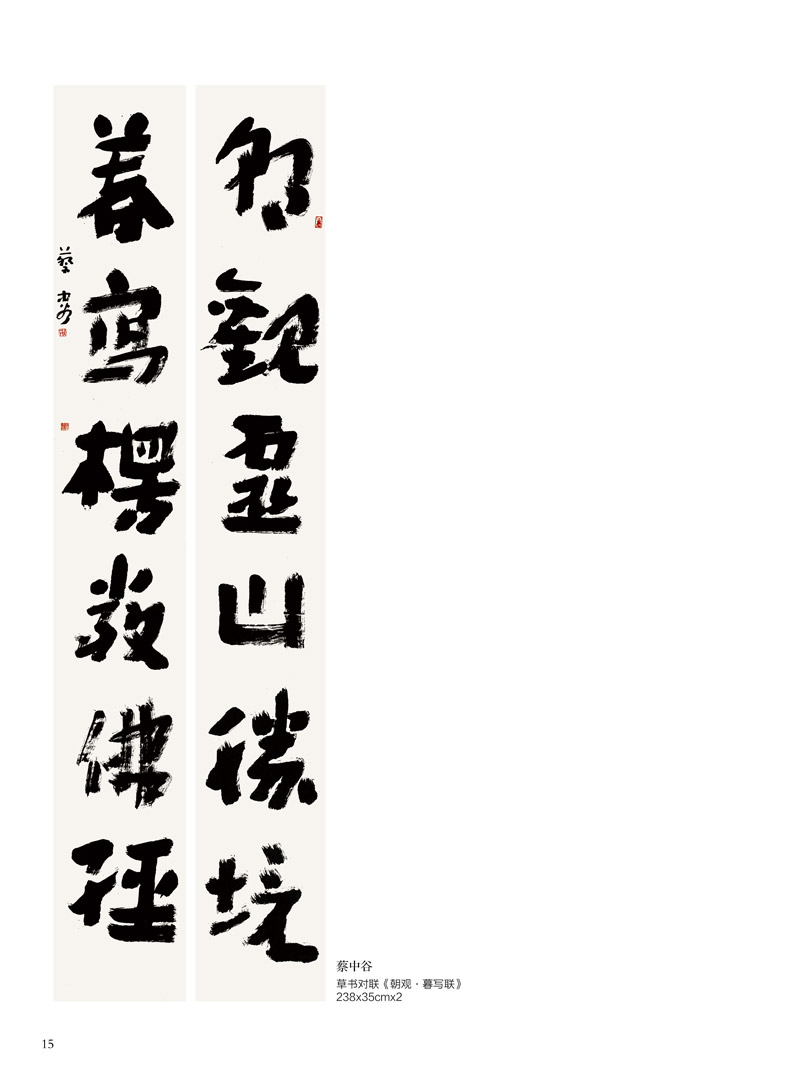 朝觀靈山勝境
暮寫楞嚴佛經
蔡中谷
蔡中谷
草书对联《朝观·暮写联》
238x35cmx2
15